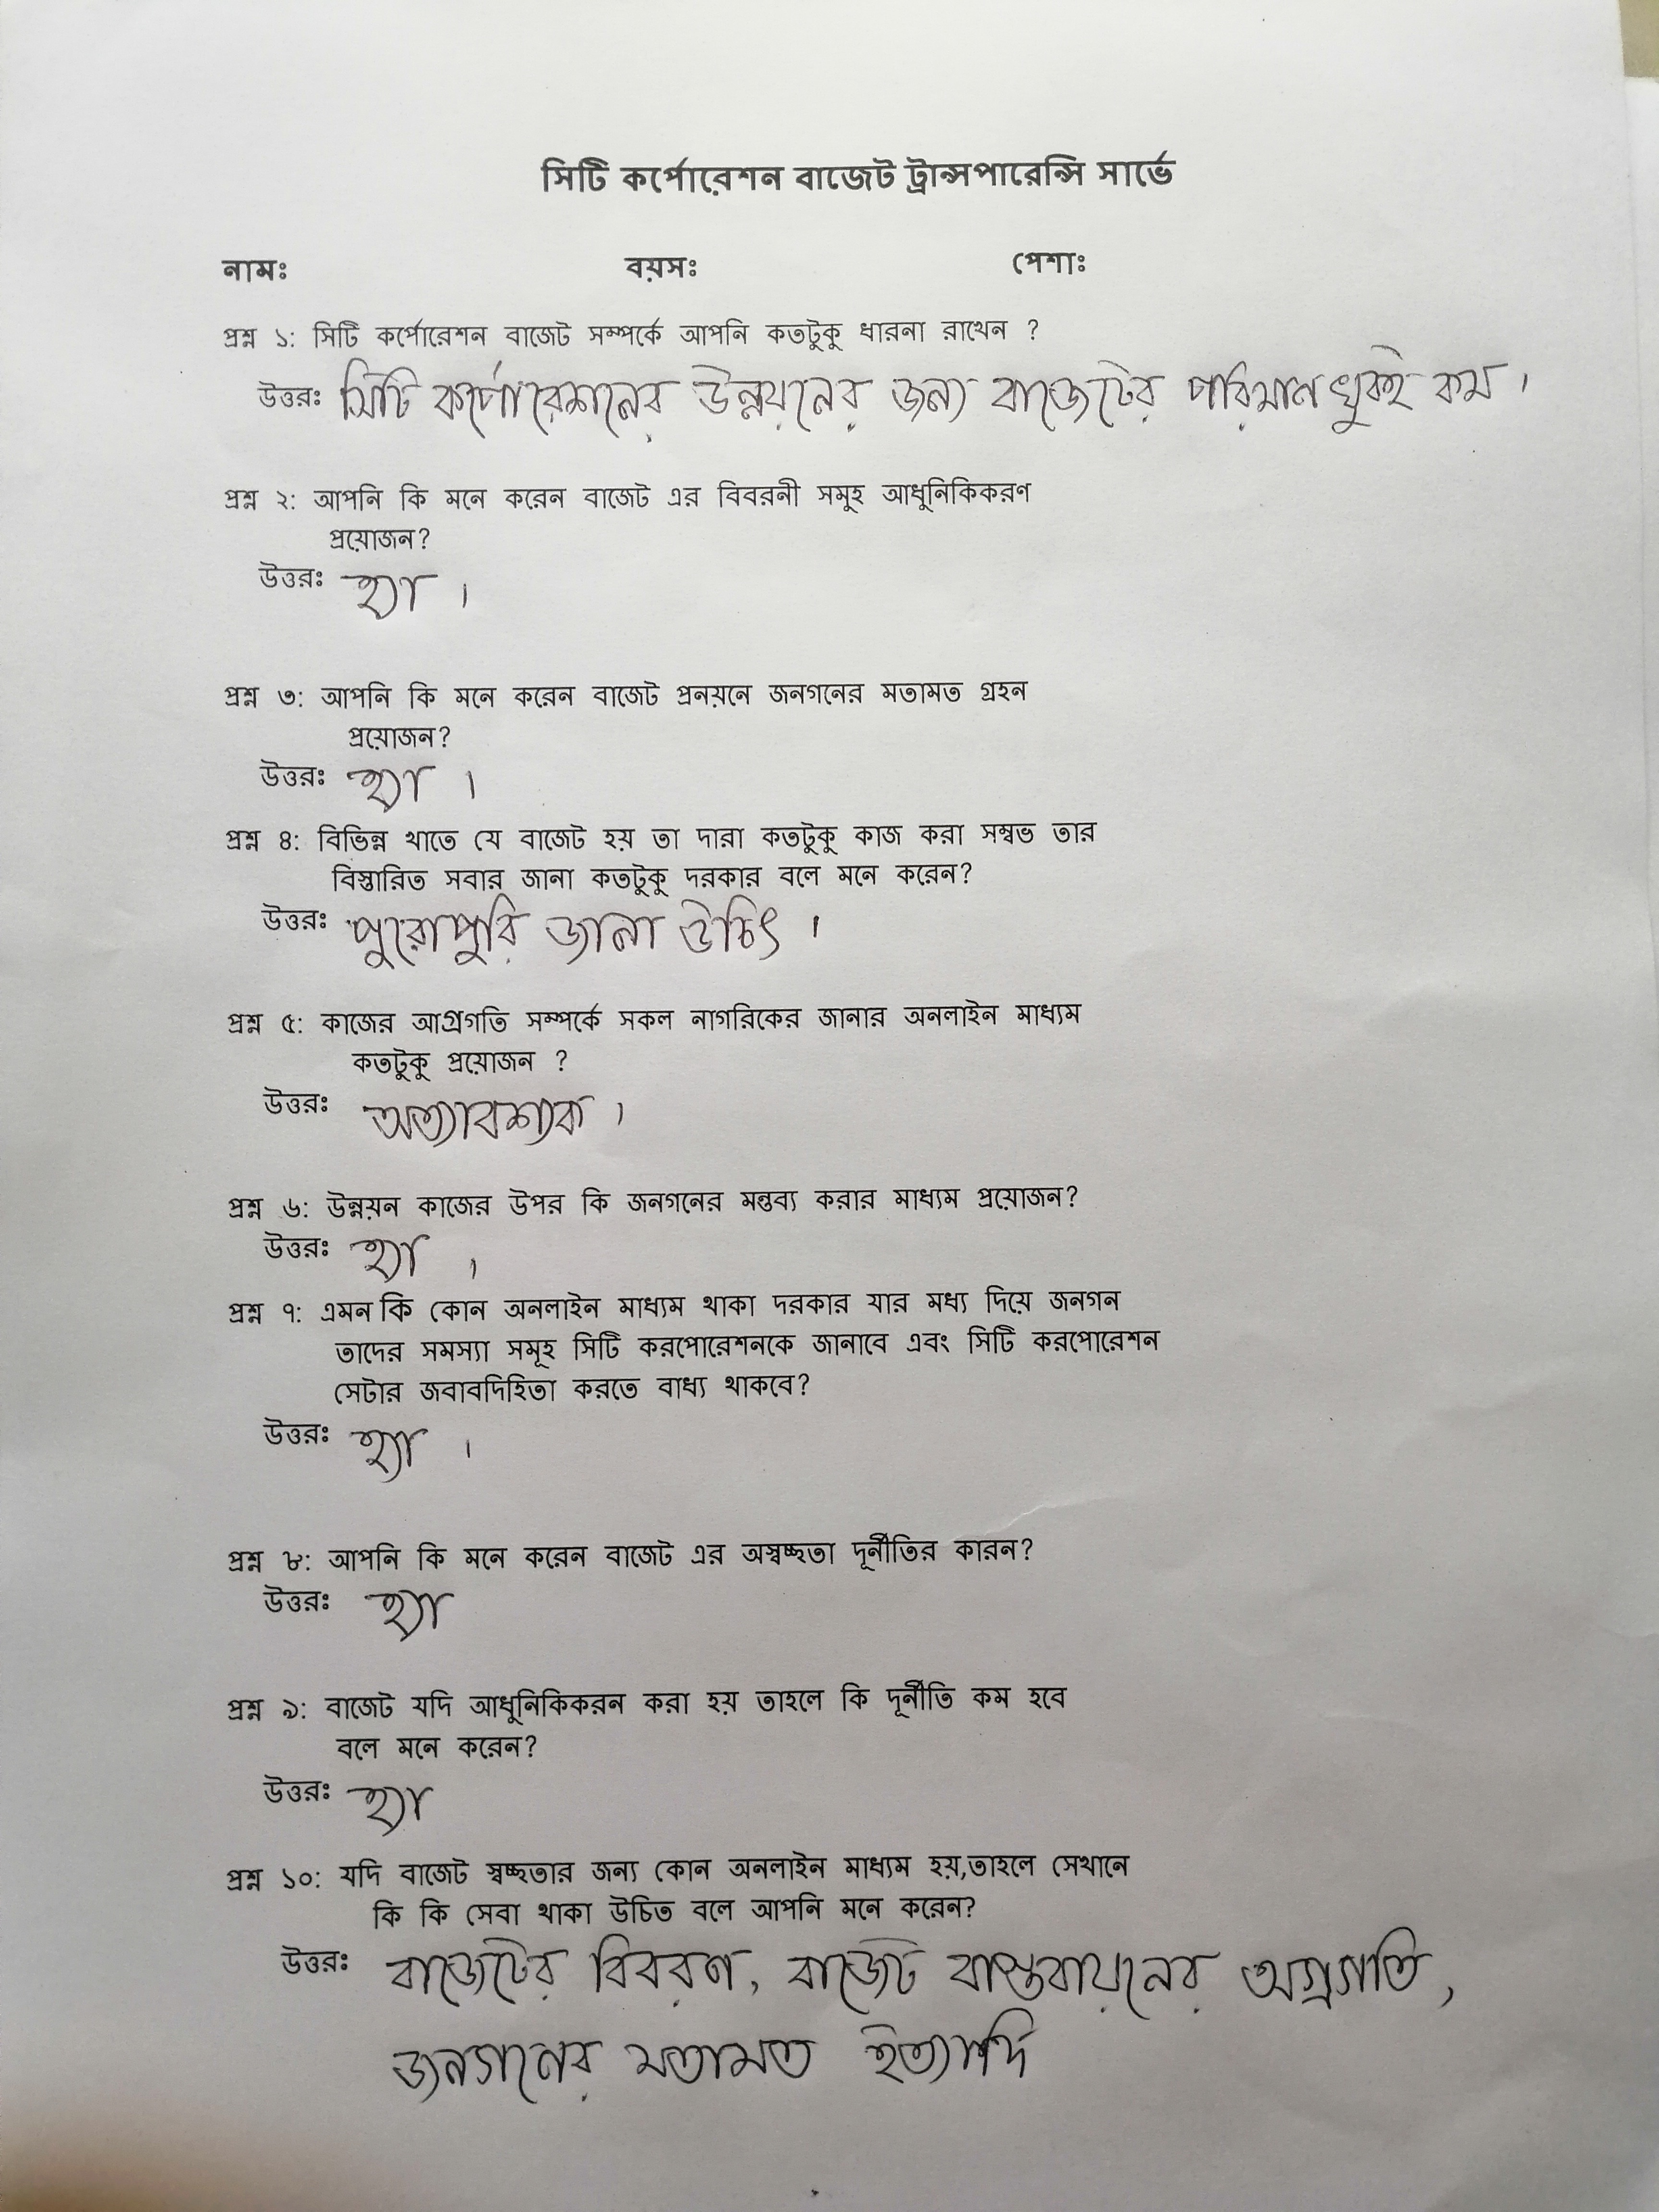 সিটি কর্পোরেশন বাজেট ট্রান্সপারেন্সি সার্ভে
নামঃ বয়সঃ পেশাঃ
প্রশ্ন ১: সিটি কর্পোরেশন বাজেট সম্পর্কে আপনি কতটুকু ধারনা রাখেন ?
উত্তরঃ সিটি কর্পোরেশনের উন্নয়নের জন্য বাজেটের পরিমান খুবই কম ।
প্রশ্ন ২: আপনি কি মনে করেন বাজেট এর বিবরনী সমুহ আধুনিকিকরণ
প্রয়োজন?
উত্তরঃ হ্যা ।
প্রশ্ন ৩: আপনি কি মনে করেন বাজেট প্রনয়নে জনগনের মতামত গ্রহন
প্রয়োজন?
উত্তরঃ হ্যা ।
প্রশ্ন ৪: বিভিন্ন খাতে যে বাজেট হয় তা দারা কতটুকু কাজ করা সম্বভ তার
বিস্তারিত সবার জানা কতটুকু দরকার বলে মনে করেন?
উত্তরঃ পুরোপুরি জানা উচিৎ ।
প্রশ্ন ৫: কাজের আগ্রগতি সম্পর্কে সকল নাগরিকের জানার অনলাইন মাধ্যম
কতটুকু প্রয়োজন ?
উত্তরঃ অত্যাবশ্যক ।
প্রশ্ন ৬: উন্নয়ন কাজের উপর কি জনগনের মন্তব্য করার মাধ্যম প্রয়োজন?
উত্তরঃ হ্যা ।
প্রশ্ন ৭: এমন কি কোন অনলাইন মাধ্যম থাকা দরকার যার মধ্য দিয়ে জনগন
তাদের সমস্যা সমূহ সিটি করপোরেশনকে জানাবে এবং সিটি করপোরেশন
সেটার জবাবদিহিতা করতে বাধ্য থাকবে?
উত্তরঃ হ্যা ।
প্রশ্ন ৮: আপনি কি মনে করেন বাজেট এর অস্বচ্ছতা দূর্নীতির কারন?
উত্তরঃ হ্যা
প্রশ্ন ৯: বাজেট যদি আধুনিকিকরন করা হয় তাহলে কি দূর্নীতি কম হবে
বলে মনে করেন?
উত্তরঃ হ্যা
প্রশ্ন ১০: যদি বাজেট স্বচ্ছতার জন্য কোন অনলাইন মাধ্যম হয়,তাহলে সেখানে
কি কি সেবা থাকা উচিত বলে আপনি মনে করেন?
উত্তরঃ বাজেটের বিবরণ, বাজেট বাস্তবায়নের অগ্রগতি,
জনগনের মতামত ইত্যাদি